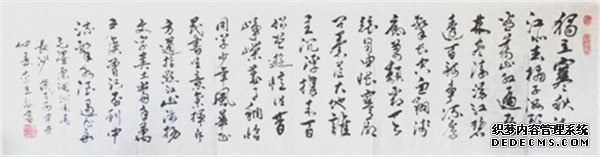 独立寒秋湘
江北去橘子洲头
看万山红遍层
林尽染漫江碧
透百舸争流鹰
击长空鱼翔浅
底万类霜天
竞自由怅寥廓
问苍茫大地谁
主沉浮携来百
侣曾游忆往昔
峥嵘岁月稠恰
同学少年风华正
茂书生意气挥斥
方遒指点江山激扬
文字粪土当年万
户侯曾记否到中
流击水浪遏飞舟
毛泽东词沁园春
长沙
织梦内容管理系统
DEDECMS.COM